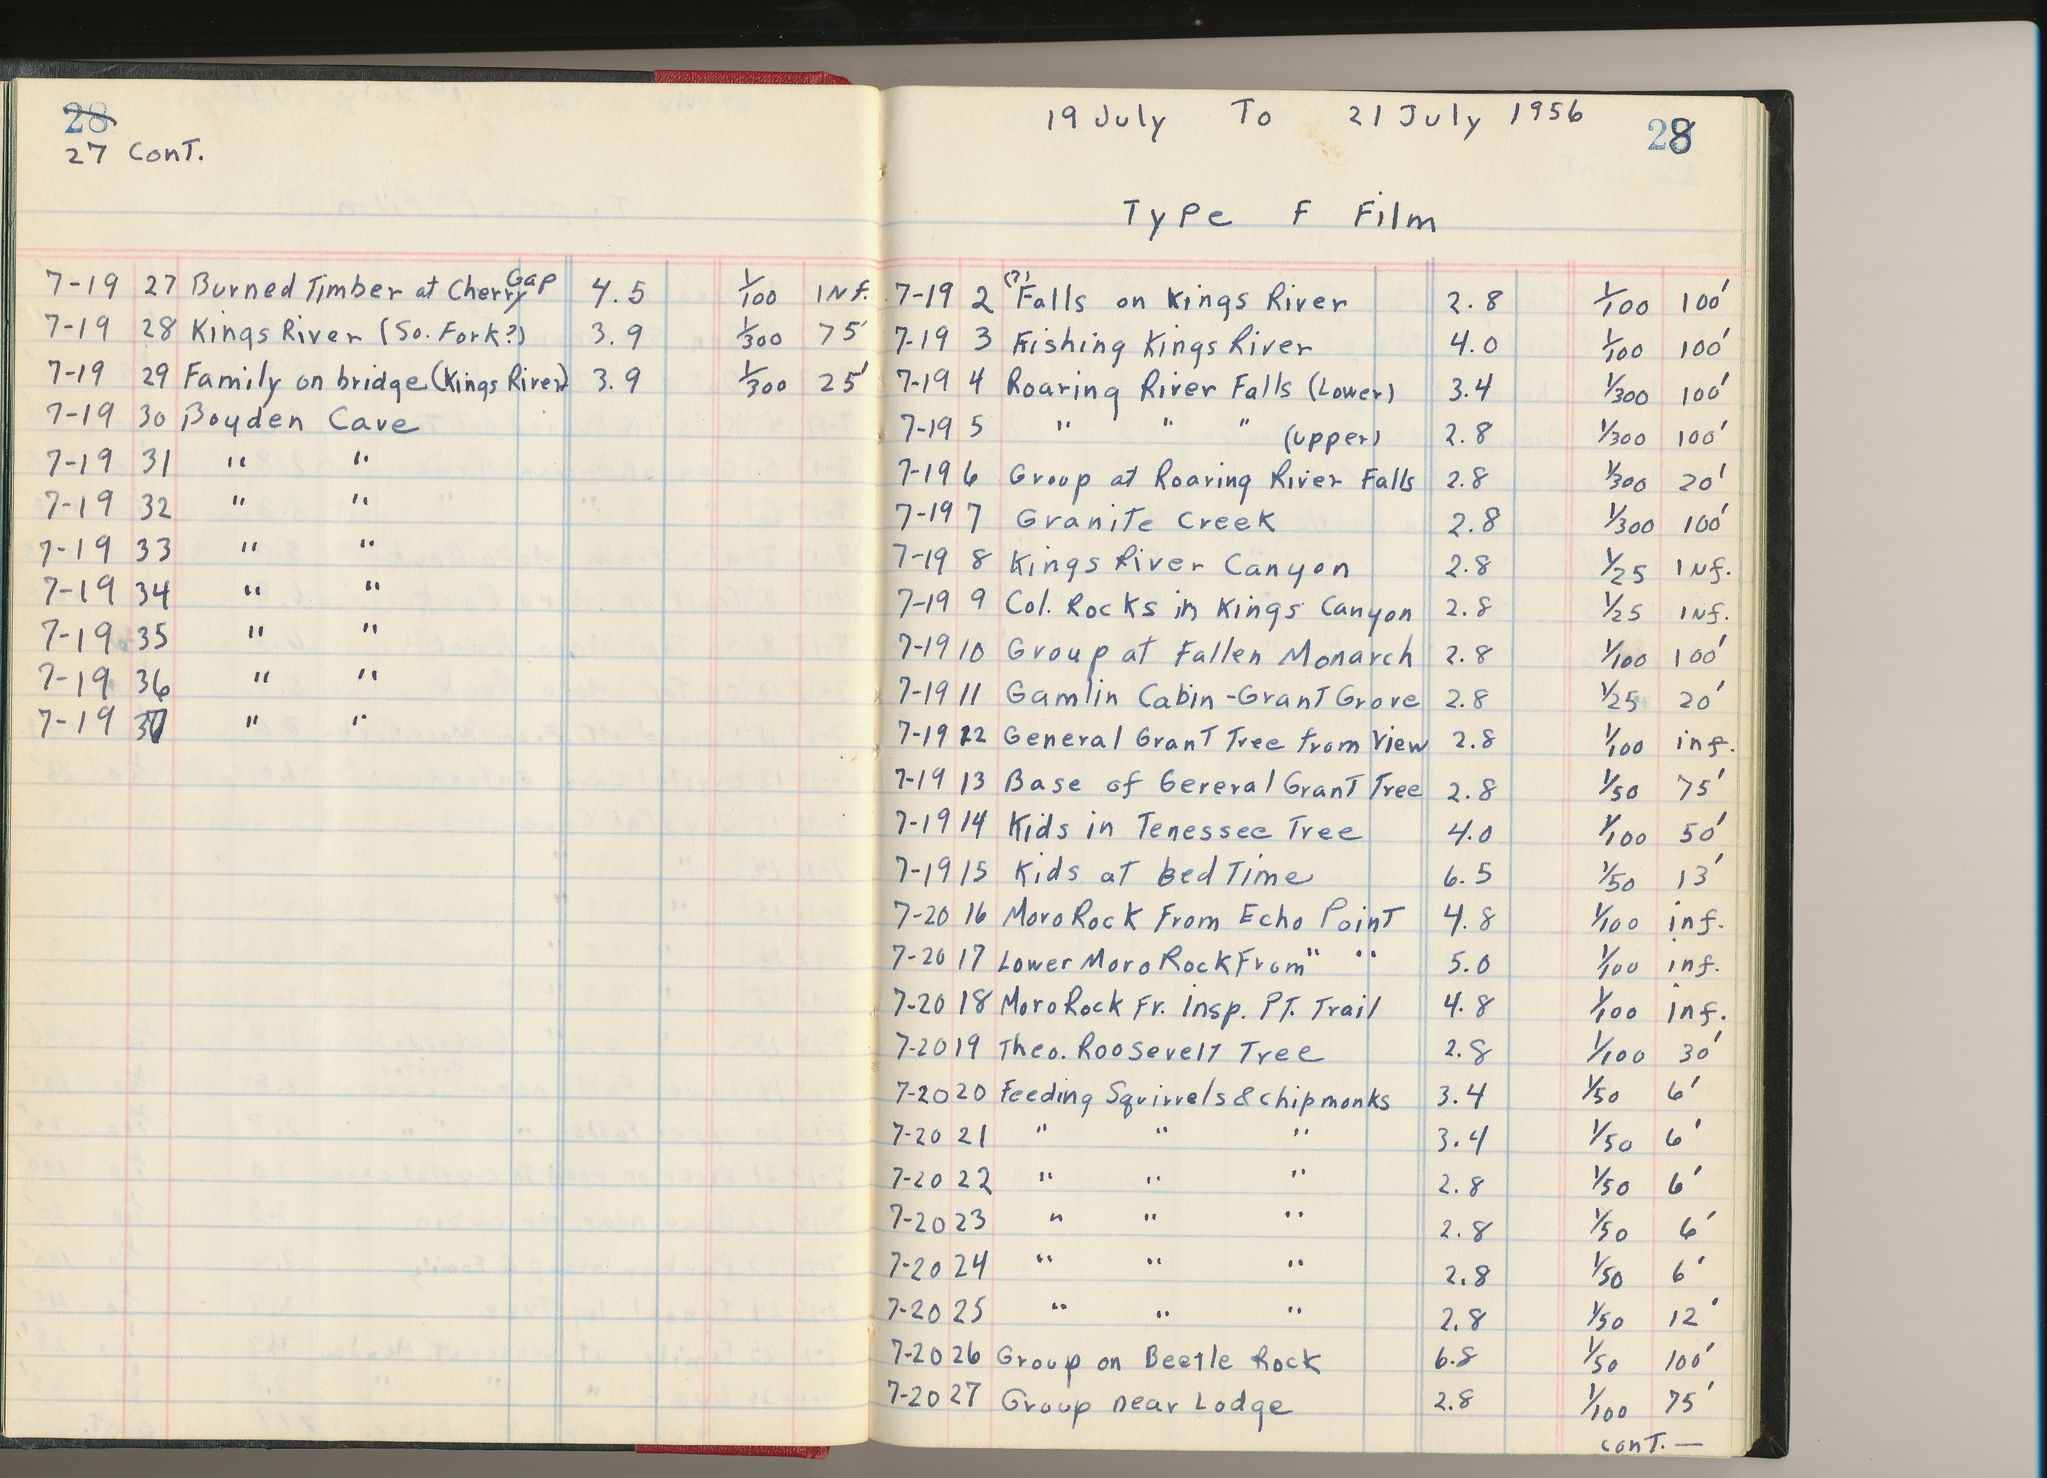 28
27 Cont.
7-19 27 Burned Timber at Cherry Gap 4.5 1/100 INf.
7-19 28 Kings River (So. Fork?) 3.9 1/300 75'
7-19 29 Family on bridge (Kings River) 3.9 1/300 25'
7-19 30 Boyden Cave
7-19 31 " "
7-19 32 " "
7-19 33 " "
7-19 34 " "
7-19 35 " "
7-19 36 " "
7-19 37 " "
19 July To 21 July 1956 28
Type F Film
7-19 2 (?) Falls on Kings River 2.8 1/100 100'
7-19 3 Fishing Kings River 4.0 1/100 100'
7-19 4 Roaring River Falls (Lower) 3.4 1/300 100'
7-19 5 " " " (upper) 2.8 1/300 100'
7-19 6 Group at Roaring River Falls 2.8 1/300 20'
7-19 7 Granite Creek 2.8 1/300 100'
7-19 8 Kings River Canyon 2.8 1/25 INf.
7-19 9 Col. Rocks in Kings Canyon 2.8 1/25 INf.
7-19 10 Group at Fallen Monarch 2.8 1/100 100'
7-19 11 Gamlin Cabin - Grant Grove 2.8 1/25 20'
7-19 12 General Grant Tree from View 2.8 1/100 inf.
7-19 13 Base of Gereral Grant Tree 2.8 1/50 75'
7-19 14 Kids in Tenessee Tree 4.0 1/100 50'
7-19 15 Kids at bed Time 6.5 1/50 13'
7-20 16 Moro Rock From Echo Point 4.8 1/100 inf.
7-20 17 Lower Moro Rock From " " 5.0 1/100 inf.
7-20 18 Moro Rock Fr. Insp. PT. Trail 4.8 1/100 Inf.
7-20 19 Theo. Roosevelt Tree 2.8 1/100 30'
7-20 20 Feeding Squirrels & chipmonks 3.4 1/50 6'
7-20 21 " " " 3.4 1/50 6'
7-20 22 " " " 2.8 1/50 6'
7-20 23 " " " 2.8 1/50 6'
7-20 24 " " " 2.8 1/50 6'
7-20 25 " " " 2.8 1/50 12'
7-20 26 Group on Beetle Rock 6.8 1/50 100'
7-20 27 Group near Lodge 2.8 1/100 75'
cont. —